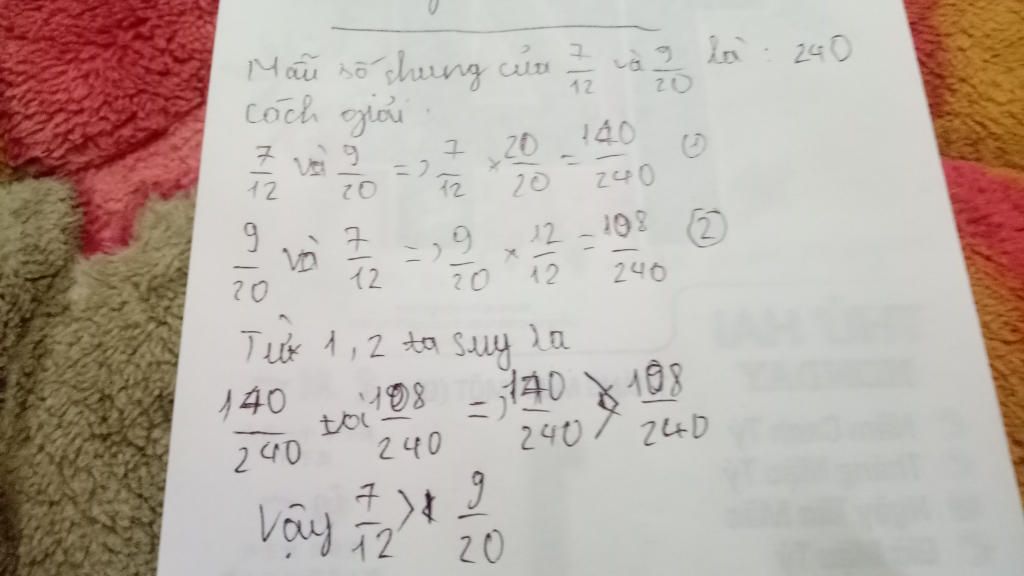 Mẫu số chung của 7/12 và 9/20 là : 240
Cách giải :
7/12 và 9/20 => 7/12 × 20/20 = 140/240 (1)
9/20 và 7/12 => 9/20 × 12/12 = 108/240 (2)
Từ 1, 2 ta suy la
140/240 với 108/240 => 140/240 > 108/240
Vậy 7/12 > 9/20
THỨ HAI
MONDAY
Năm Canh Tý